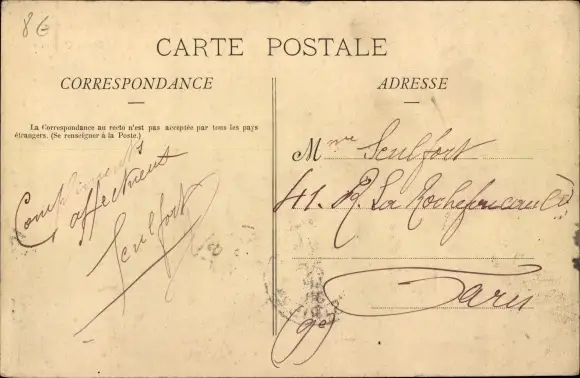 8€
CARTE POSTALE
CORRESPONDANCE
La Correspondance au recto n'est pas acceptée par tous les pays
étrangers. (Se renseigner à la Poste.)
Compliments
affectueux
Seulfort
ADRESSE
Mme Seulfort
41. R. La Rochefoucauld
Paris
9e